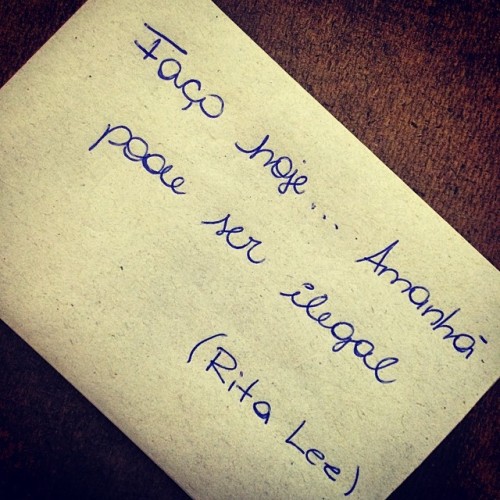 Faço hoje... Amanhã
pode ser ilegal
(Rita Lee)